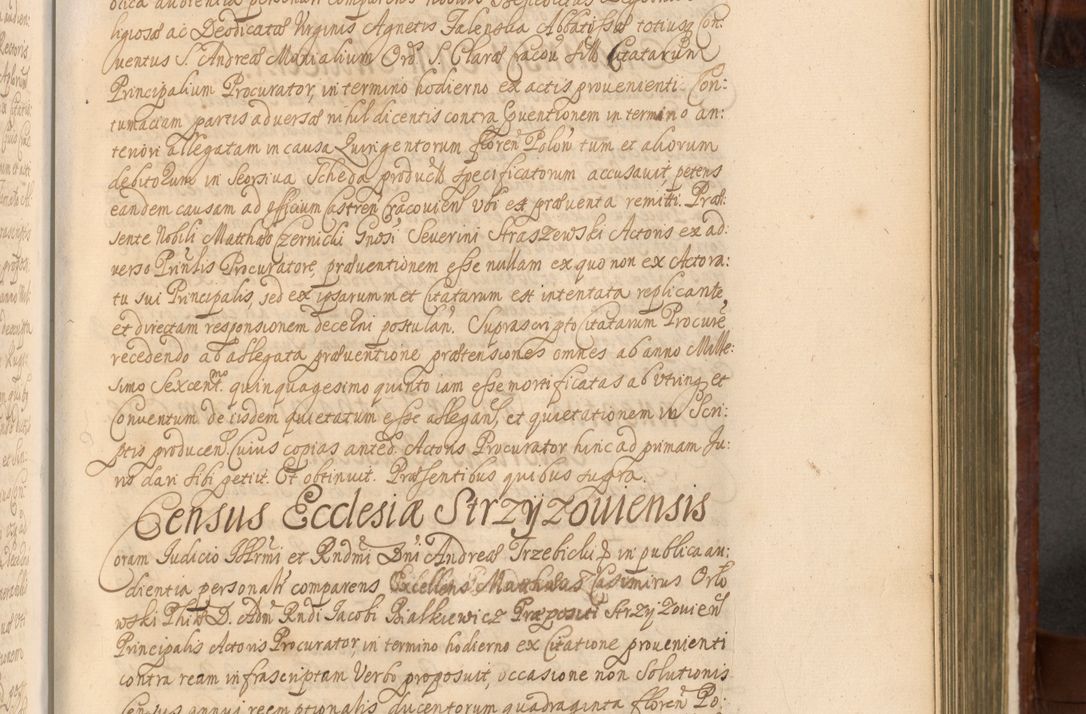 ligiosæ ac Deodicatæ Virginis Agnetis Falenska Abbatissæ totiusq Con:
ventus S. Andreæ Monialium Ord. S. Claræ Cracov. Citatarum
Principalium Procurator, in termino hodierno ex actis provenienti. Con:
tumaciam partis adversæ nihil dicentis contra Quentionem in termino an:
teriori allegatam in causa Quingentorum floren Polon tum et aliorum
debitorum in Seorsiva Scheda produc specificatorum accusavit petens
eandem causam ad officium Castren Cracovien Vbi est præventa remitti. Præ:
sente Nobili Matthæo Czernicki Gnosi Severini Straszewski Actoris ex ad:
verso Prinlis Procuratore, præventionem esse nullam ex quo non ex Actora:
tu sui Principalis, sed ex ipsarummet Citatarum est intentata replicante,
et directam responsionem decerni postulan. Suprascripto Citatarum Procure,
recedendo ab allegata præventione prætensiones omnes ab anno Mille:
simo Sexcentno. quinquagesimo quinto iam esse mortificatas ab Vtrinq et
Conventum de iisdem quietatum esse allegan, et quietationem in Scri:
ptis producen. Cuius copias anted. Actoris Procurator hinc ad primam Ju:
ris dari sibi petiit. Et obtinuit. Præsentibus quibus supra.
Census Ecclesiæ Strzyzoviensis
Coram Judicio Illrmi et Rndmi Dni Andreæ Trzebicki in publica au:
dientia personalr comparens Excellens Matthias Casimirus Orło
wski Phiæ D. Adm Rndi Jacobi Białkiewicz Præpositi Strzyzovien
Principalis Actoris Procurator, in termino hodierno ex Citatione provenienti
contra ream infrascriptam Verbo proposuit, occasione non Solutionis
Census annui reemptionalis ducentorum quadraginta floren Po: